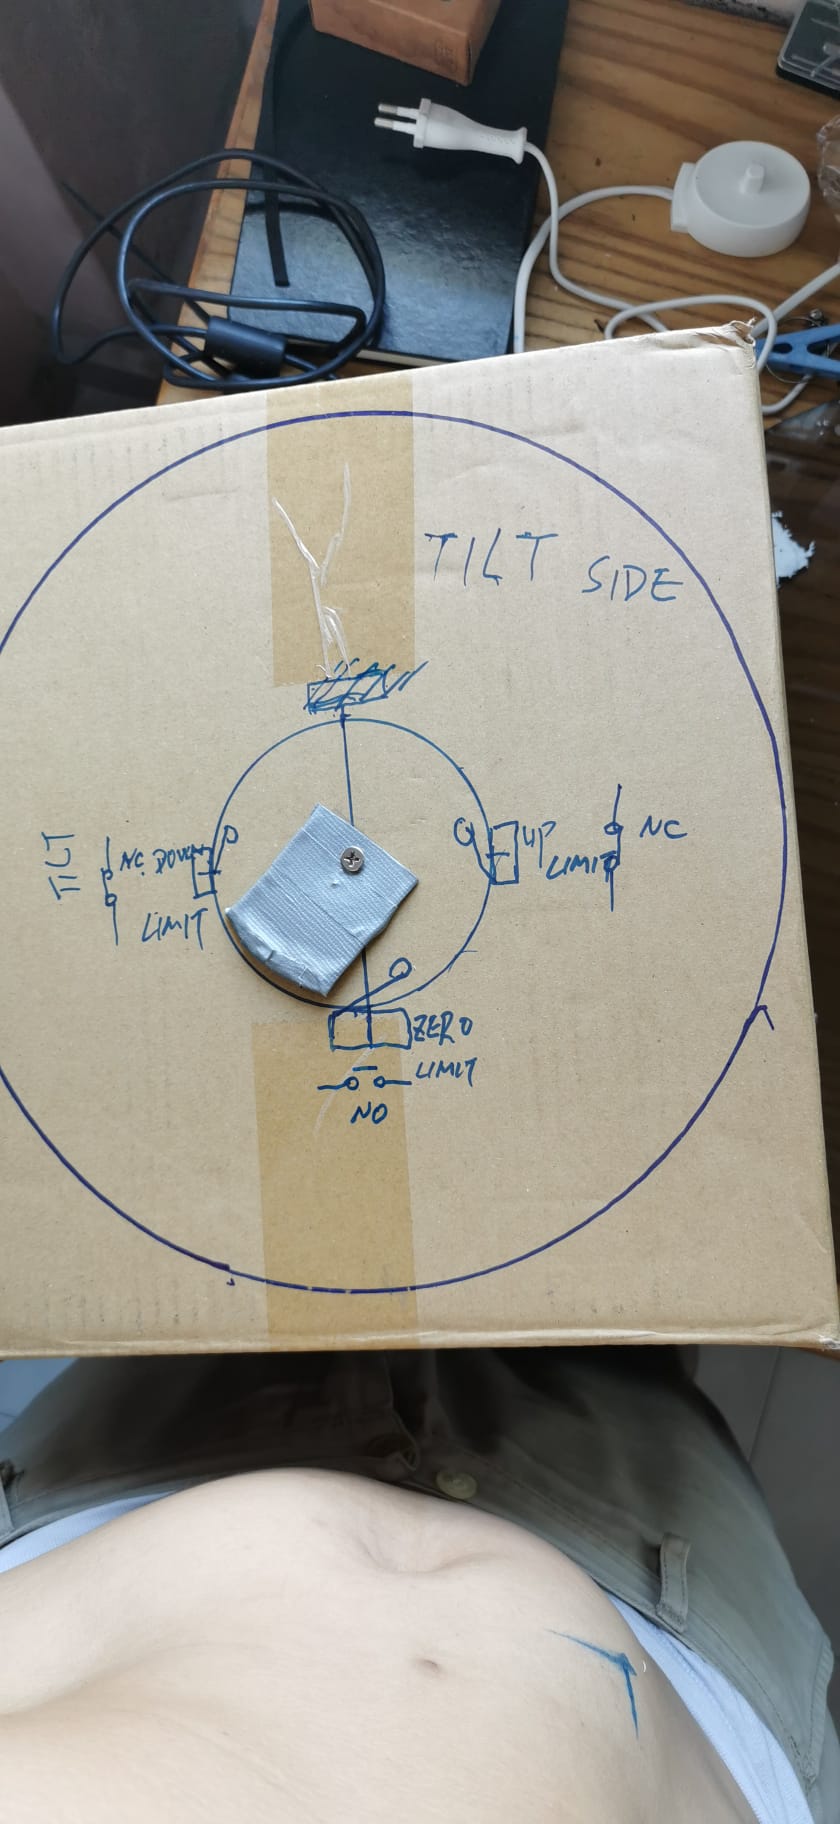 TILT SIDE
TILT
NC DOWN
LIMIT
UP
LIMIT
NC
ZERO
LIMIT
NO